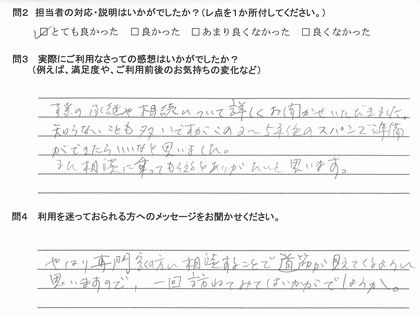 問2 担当者の対応・説明はいかがでしたか？（レ点を1か所付してください。）
☑とても良かった □良かった □あまり良くなかった □良くなかった
問3 実際にご利用なさっての感想はいかがでしたか？
（例えば、満足度や、ご利用前後のお気持ちの変化など）
の承継や相続について詳しくお聞かせいただきました。
知らないことも多いですがこの2〜5年位のスパンで準備
ができたらいいなと思いました。
また相談に乗ってもらえるとありがたいと思います。
問4 利用を迷っておられる方へのメッセージをお聞かせください。
やはり専門家の方に相談することで道筋が見えてくるように
思いますので、一回訪ねてみてはいかがでしょうか。